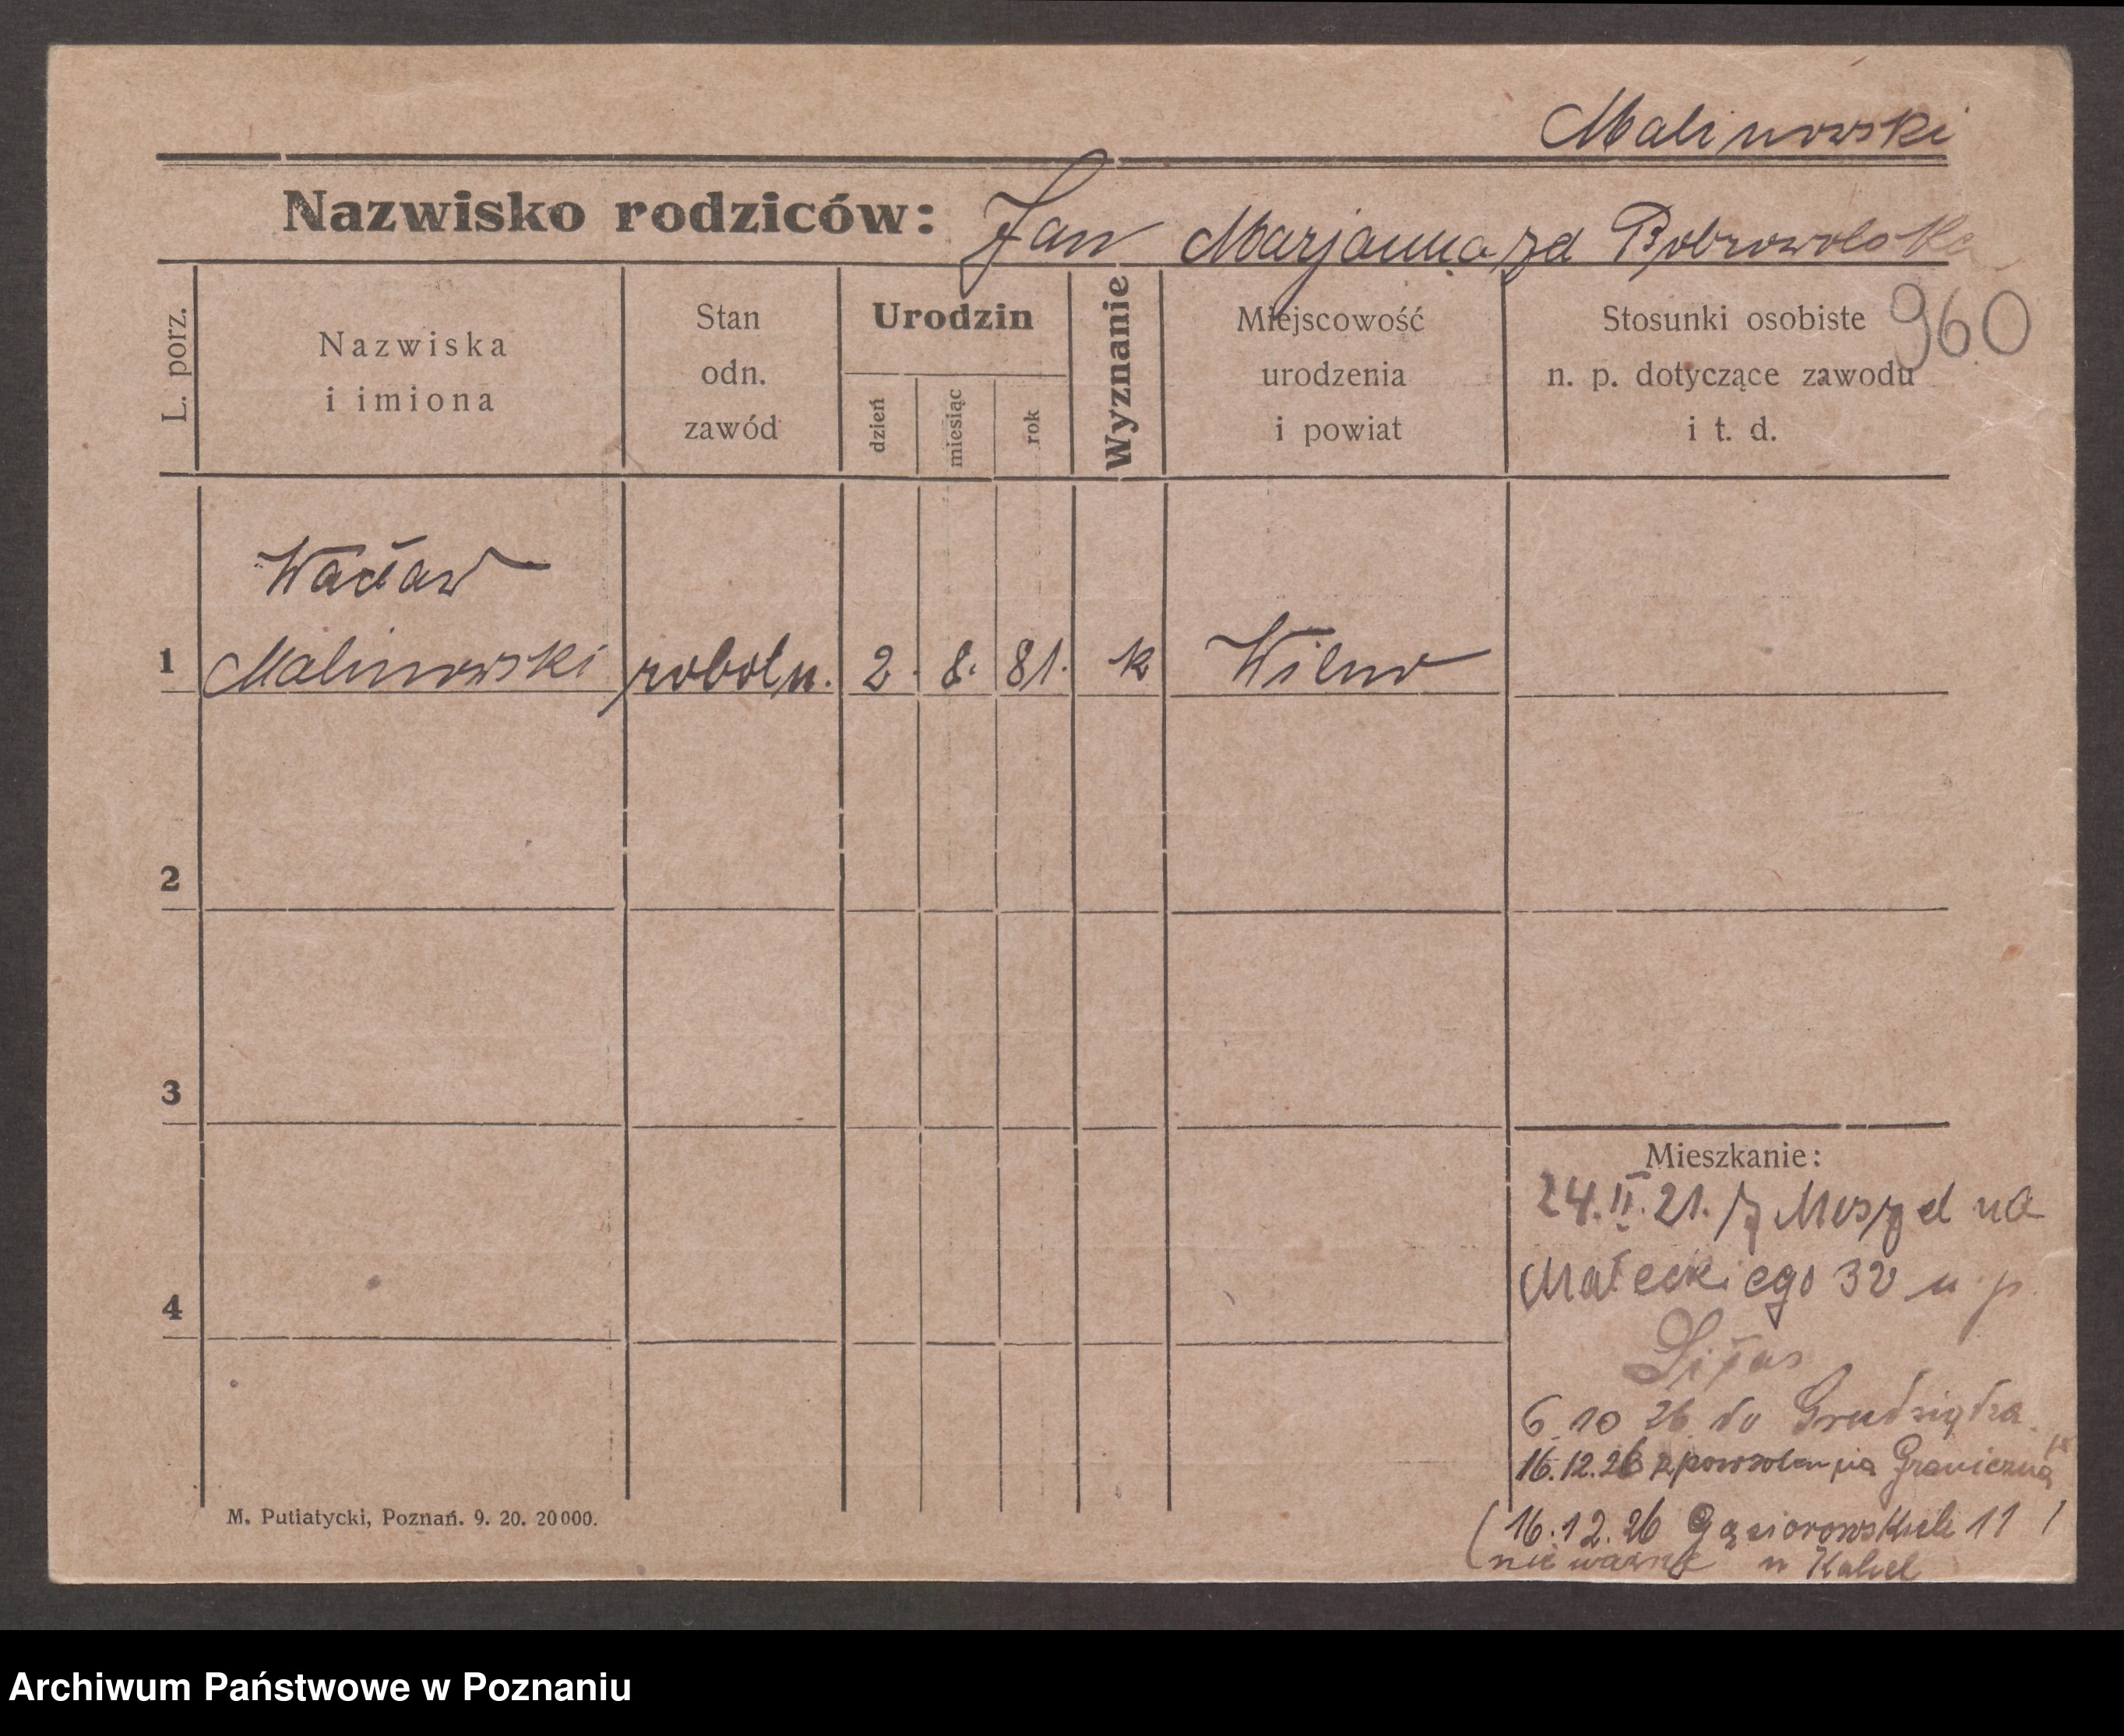 Malinowski
Nazwisko rodziców: Jan Marjanna zd Dobrowolska
960
L. porz.
Nazwiska
i imiona
Stan
odn.
zawód
Urodzin
dzień
miesiąc
rok
Wyznanie
Miejscowość
urodzenia
i powiat
Stosunki osobiste
n. p. dotyczące zawodu
i t. d.
Wacław
1 Malinowski robotn. 2. 8. 81. k Wilno
2
3
Mieszkanie:
24. II. 21. na
Małeckiego 32 u p.
4
6 10 26 do Grudziądza
16.12.26 z powrotem na Graniczną
M. Putiatycki, Poznań. 9. 20. 20000.
(16.12.26 Gąsiorowskich 11
nie ważne u
Archiwum Państwowe w Poznaniu